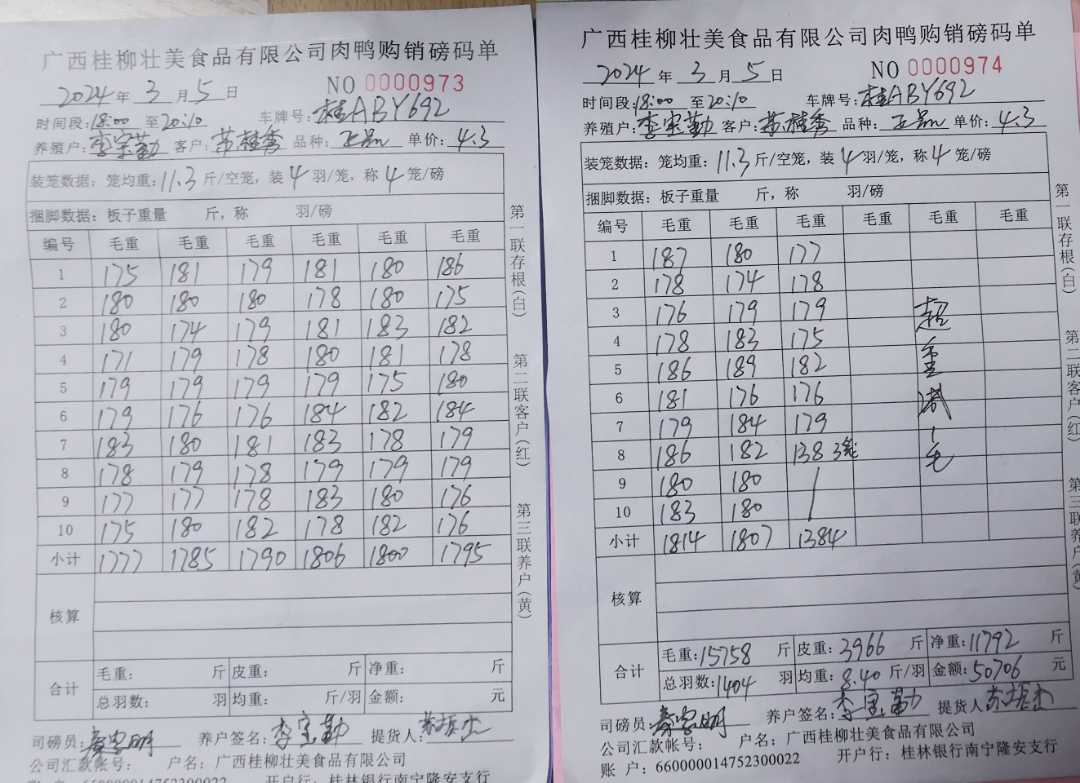 广西桂柳壮美食品有限公司肉鸭购销磅码单
2024年3月5日 NO 0000973
时间段:18:00 至20:10 车牌号:桂ABY692
养殖户:李宝勤 客户:苏桂秀 品种: 单价:4.3
装笼数据: 笼均重:11.3斤/空笼, 装4羽/笼, 称4笼/磅
捆脚数据: 板子重量 斤, 称 羽/磅
编号 毛重 毛重 毛重 毛重 毛重 毛重
1 175 181 179 181 180 186
2 180 180 180 178 180 175
3 180 174 179 181 183 182
4 171 179 178 180 181 178
5 179 179 179 179 175 180
6 179 176 176 184 182 184
7 183 180 181 183 178 179
8 178 179 178 179 179 179
9 177 177 178 183 80 176
10 175 180 182 178 182 176
小计 1777 1785 1790 1806 1800 1795
核算
合计 毛重: 斤 皮重: 斤 净重: 斤
总羽数: 羽 均重: 斤/羽 金额: 元
司磅员: 养户签名:李宝勤 提货人:
公司汇款帐号: 户名: 广西桂柳壮美食品有限公司
账 户: 660000014752300022 开户行: 桂林银行南宁隆安支行
第一联存根(白)
第二联客户(红)
第三联养户(黄)
广西桂柳壮美食品有限公司肉鸭购销磅码单
2024年3月5日 NO 0000974
时间段:18:00 至20:10 车牌号:桂ABY692
养殖户:李宝勤 客户:苏桂秀 品种: 单价:4.3
装笼数据: 笼均重:11.3斤/空笼, 装4羽/笼, 称4笼/磅
捆脚数据: 板子重量 斤, 称 羽/磅
编号 毛重 毛重 毛重 毛重 毛重 毛重
1 187 180 177
2 178 174 178
3 176 179 179
4 178 183 175
5 186 189 182
6 181 176 176
7 179 184 179
8 186 182 138 3笼
9 180 180
10 183 180
小计 1814 1807 1384
超重减1毛
核算
合计 毛重:15758斤 皮重:3966斤 净重:11792斤
总羽数:1404羽 均重:8.40斤/羽 金额:50706元
司磅员: 养户签名:李宝勤 提货人:
公司汇款帐号: 户名: 广西桂柳壮美食品有限公司
账 户: 660000014752300022 开户行: 桂林银行南宁隆安支行
第一联存根(白)
第二联客户(红)
第三联养户(黄)